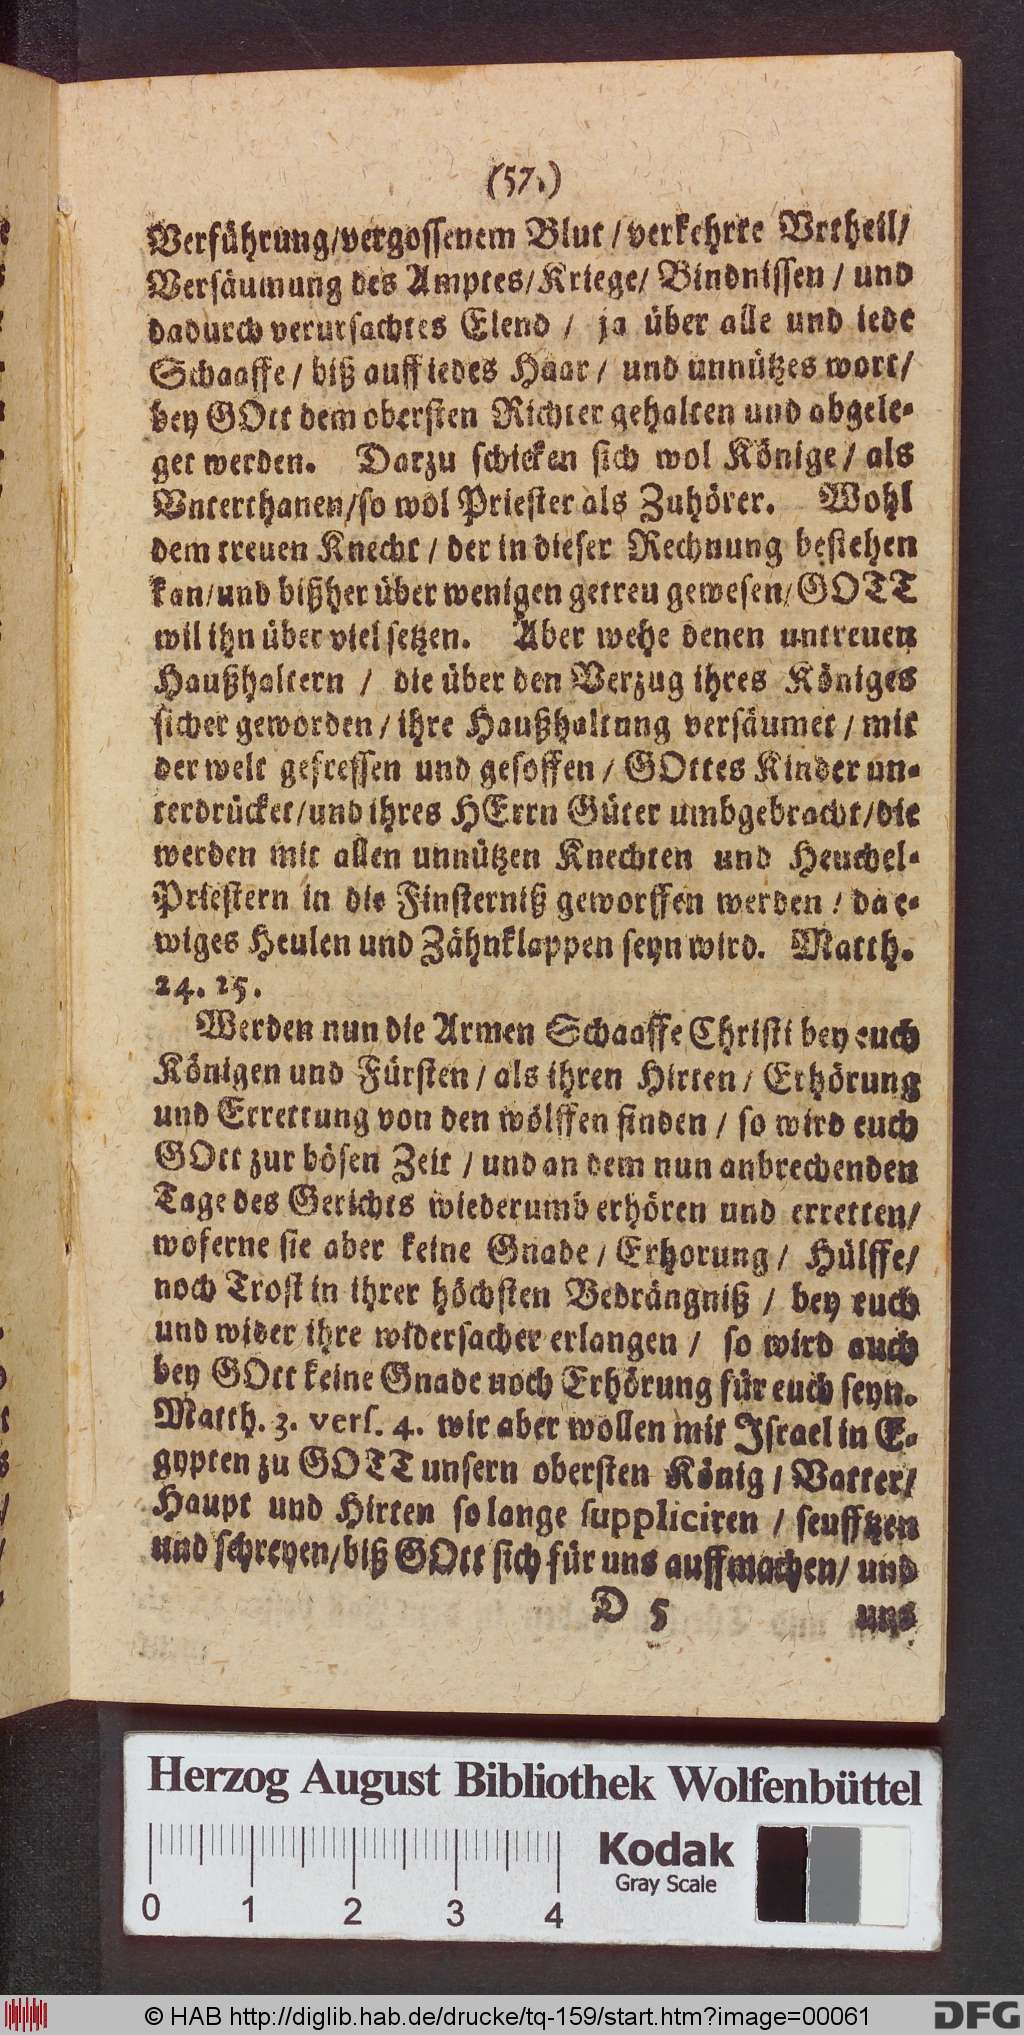 (57.)
Verführung/vergossenem Blut / verkehrte Vrtheil/
Versäumung des Amptes/Kriege/ Bindnissen / und
dadurch verursachtes Elend / ja über alle und iede
Schaaffe / biß auff iedes Haar / und unnützes wort/
bey GOtt dem obersten Richter gehalten und abgele-
get werden. Darzu schicken sich wol Könige / als
Vnterthanen/so wol Priester als Zuhörer. Wohl
dem treuen Knecht / der in dieser Rechnung bestehen
kan/und bißher über wenigen getreu gewesen/GOTT
wil ihn über viel setzen. Aber wehe denen untreuen
Haußhaltern / die über den Verzug ihres Königes
sicher geworden / ihre Haußhaltung versäumet / mit
der welt gefressen und gesoffen / GOttes Kinder un-
terdrücket/und ihres HErrn Güter umbgebracht/die
werden mit allen unnützen Knechten und Heuchel-
Priestern in die Finsterniß geworffen werden / da e-
wiges Heulen und Zähnklappen seyn wird. Matth.
24. 25.
Werden nun die Armen Schaaffe Christi bey euch
Königen und Fürsten / als ihren Hirten / Erhörung
und Errettung von den wölffen finden / so wird euch
GOtt zur bösen Zeit / und an dem nun anbrechenden
Tage des Gerichts wiederumb erhören und erretten/
woferne sie aber keine Gnade / Erhorung / Hülffe/
noch Trost in ihrer höchsten Bedrängniß / bey euch
und wider ihre widersacher erlangen / so wird auch
bey GOtt keine Gnade noch Erhörung für euch seyn.
Matth. 3. vers. 4. wir aber wollen mit Israel in E-
gypten zu GOTT unsern obersten König / Vatter/
Haupt und Hirten so lange suppliciren / seufftzen
und schreyen/biß GOtt sich für uns auffmachen/ und
D 5 uns
Herzog August Bibliothek Wolfenbüttel
0 1 2 3 4
Kodak
Gray Scale
© HAB http://diglib.hab.de/drucke/tq-159/start.htm?image=00061
DFG